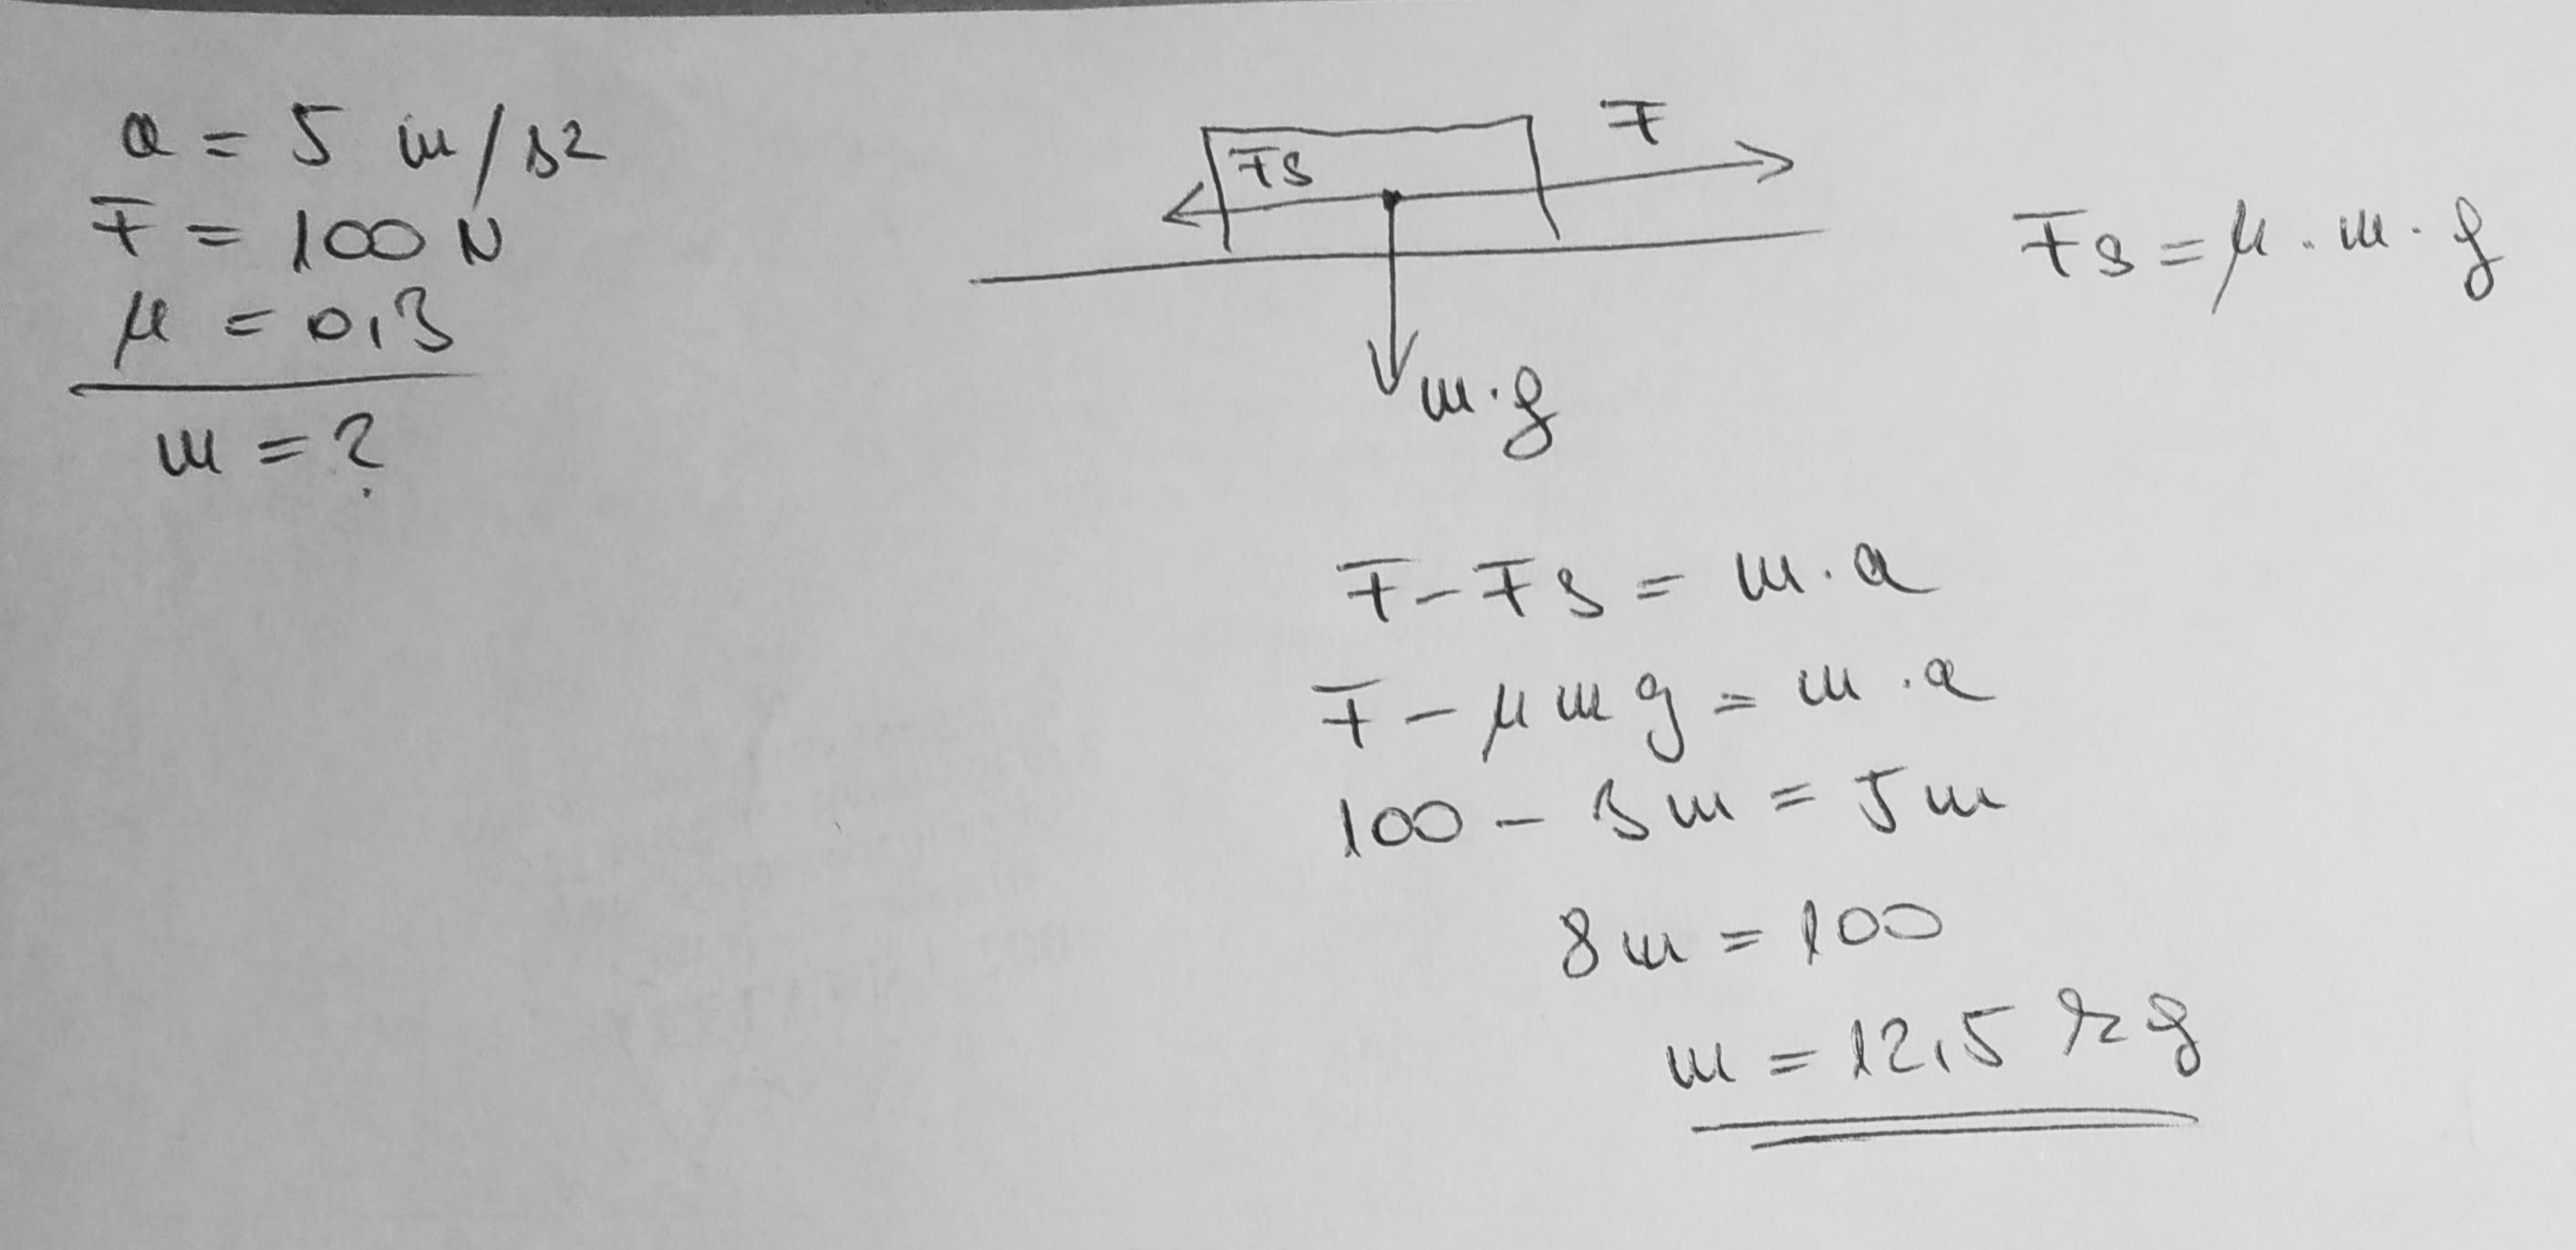 a = 5 m/s2
F = 100 N
μ = 0,3
m = ?
F
Fs
m·g
Fs = μ·m·g
F - Fs = m·a
F - μmg = m·a
100 - 3m = 5m
8m = 100
m = 12,5 kg